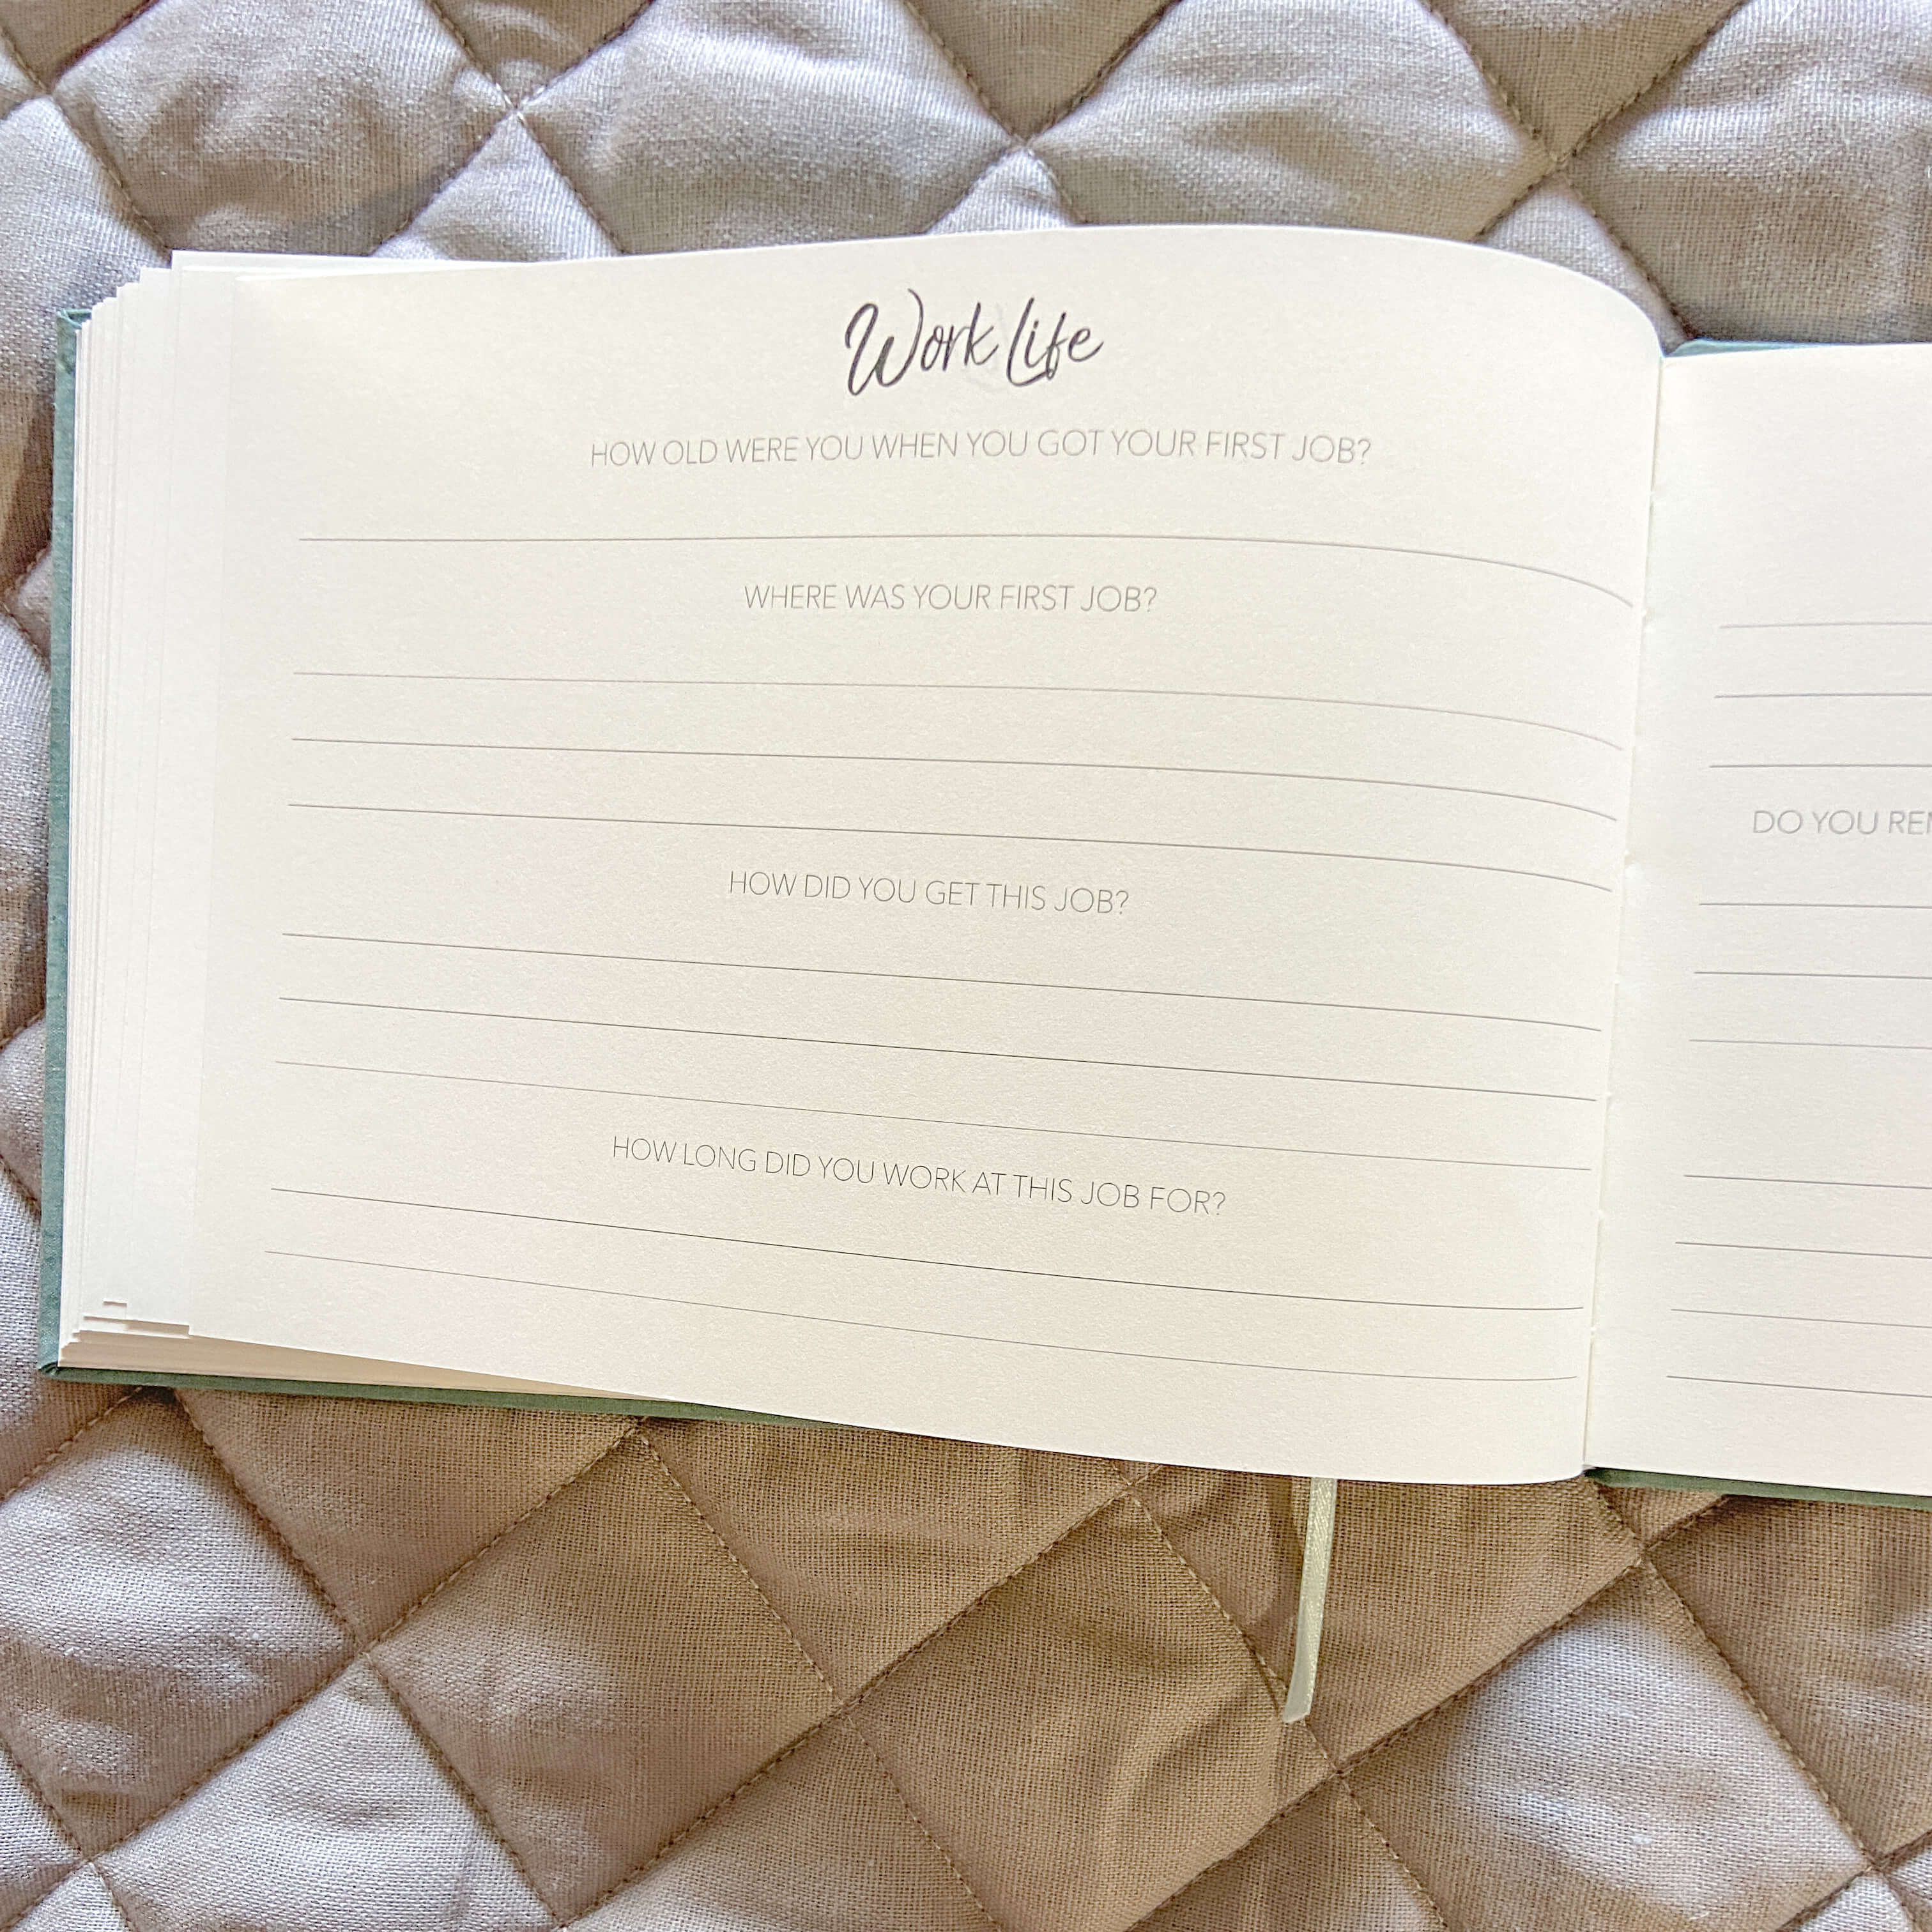 Work Life
HOW OLD WERE YOU WHEN YOU GOT YOUR FIRST JOB?
WHERE WAS YOUR FIRST JOB?
HOW DID YOU GET THIS JOB?
HOW LONG DID YOU WORK AT THIS JOB FOR?
DO YOU